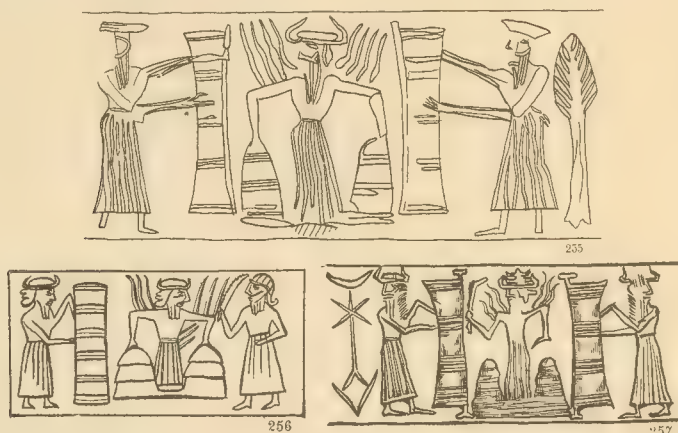 235
256
257